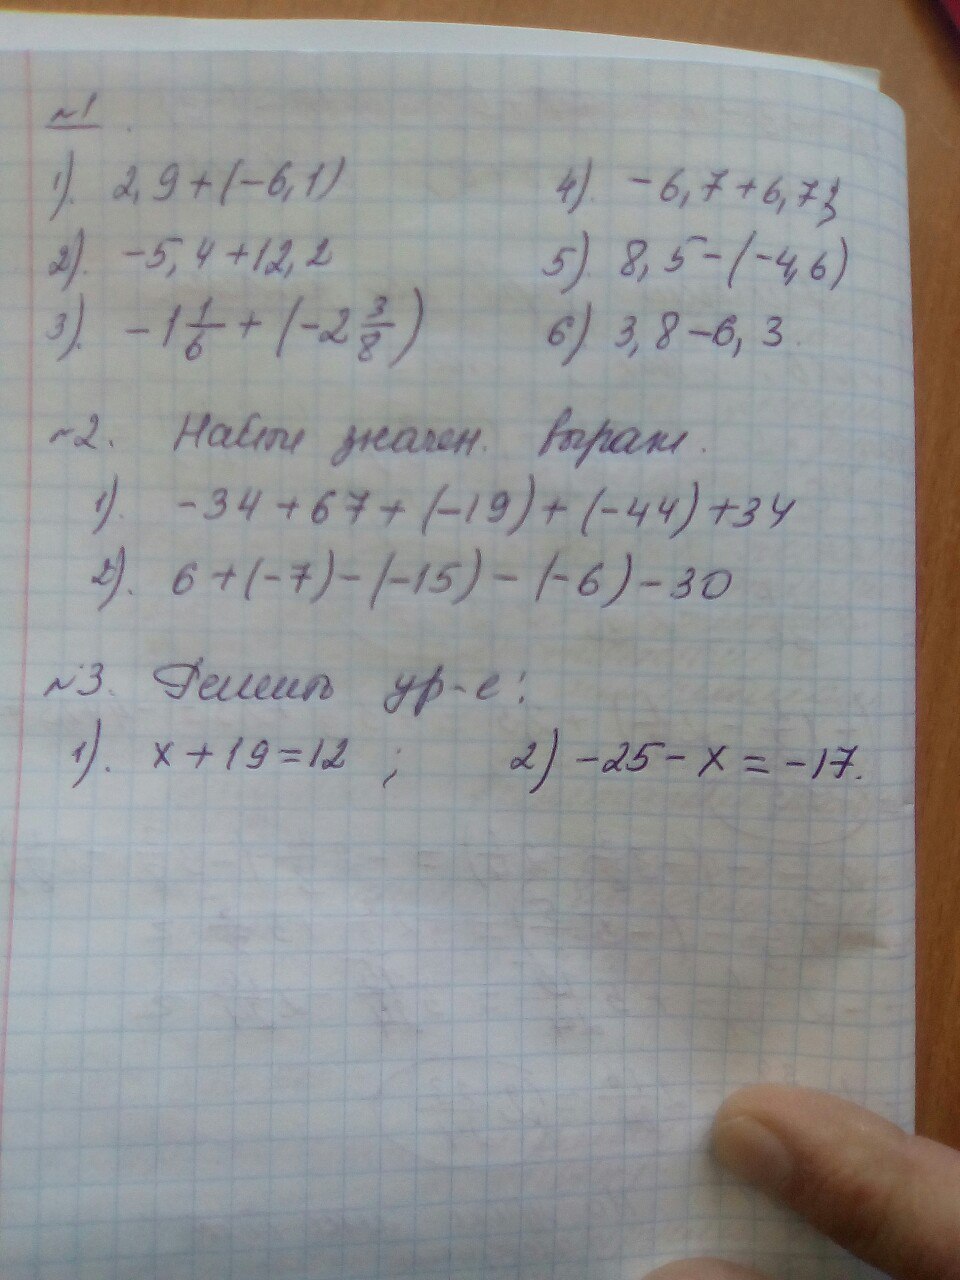 №1
1). 2,9+(-6,1) 4). -6,7+6,7;
2). -5,4+12,2 5) 8,5-(-4,6)
3). -1 1/6 + (-2 3/8) 6) 3,8-6,3.
№2. Найти значен. выраж.
1). -34+67+(-19)+(-44)+34
2). 6+(-7)-(-15)-(-6)-30
№3. Решить ур-е:
1). x+19=12 ; 2) -25-x=-17.